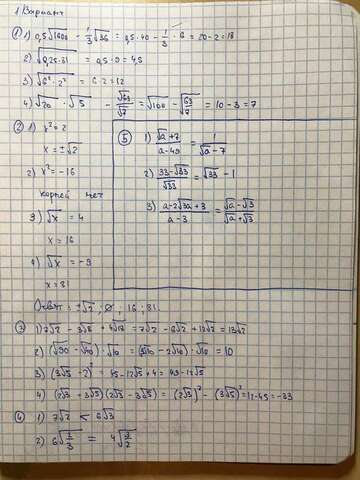 1 Вариант
① 1) 0,5√1600 - 1/3 √36 = 0,5·40 - 1/3 · 6 = 20-2=18
2) √0,25·81 = 0,5·9 = 4,5
3) √6²·2² = 6·2=12
4) √20 · √5 - √63/√7 = √100 - √63/√7 = 10-3=7
② 1) x²=2
x = ±√2
2) x² = -16
корней нет
3) √x = 4
x = 16
4) √x = -9
x = 81
Ответ: ±√2; ∅; 16; 81.
⑤ 1) √a+7/a-49 = 1/√a-7
2) 33-√33/√33 = √33 - 1
3) a-2√3a+3/a-3 = √a-√3/√a+√3
③ 1) 7√2 - 3√8 + 4√18 = 7√2 - 6√2 + 12√2 = 13√2
2) (√90 - √40) · √10 = (3√10 - 2√10) · √10 = 10
3) (3√5 - 2)² = 45-12√5+4 = 49-12√5
4) (2√3 + 3√5)(2√3 - 3√5) = (2√3)² - (3√5)² = 12-45 = -33
④ 1) 7√2 < 6√3